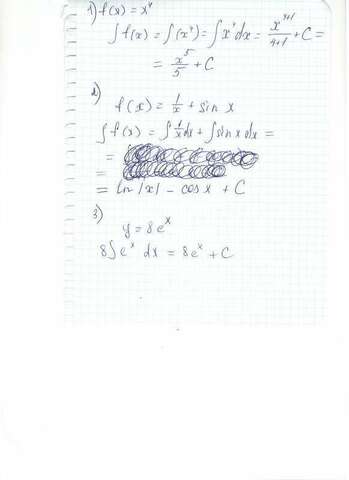 1) f(x) = x⁴
∫f(x) = ∫(x⁴) = ∫x⁴dx = x⁴⁺¹/4+1 + C =
= x⁵/5 + C
2)
f(x) = 1/x + sin x
∫f(x) = ∫1/x dx + ∫sin x dx =
=
=
= ln|x| - cos x + C
3)
y = 8eˣ
8∫eˣ dx = 8eˣ + C